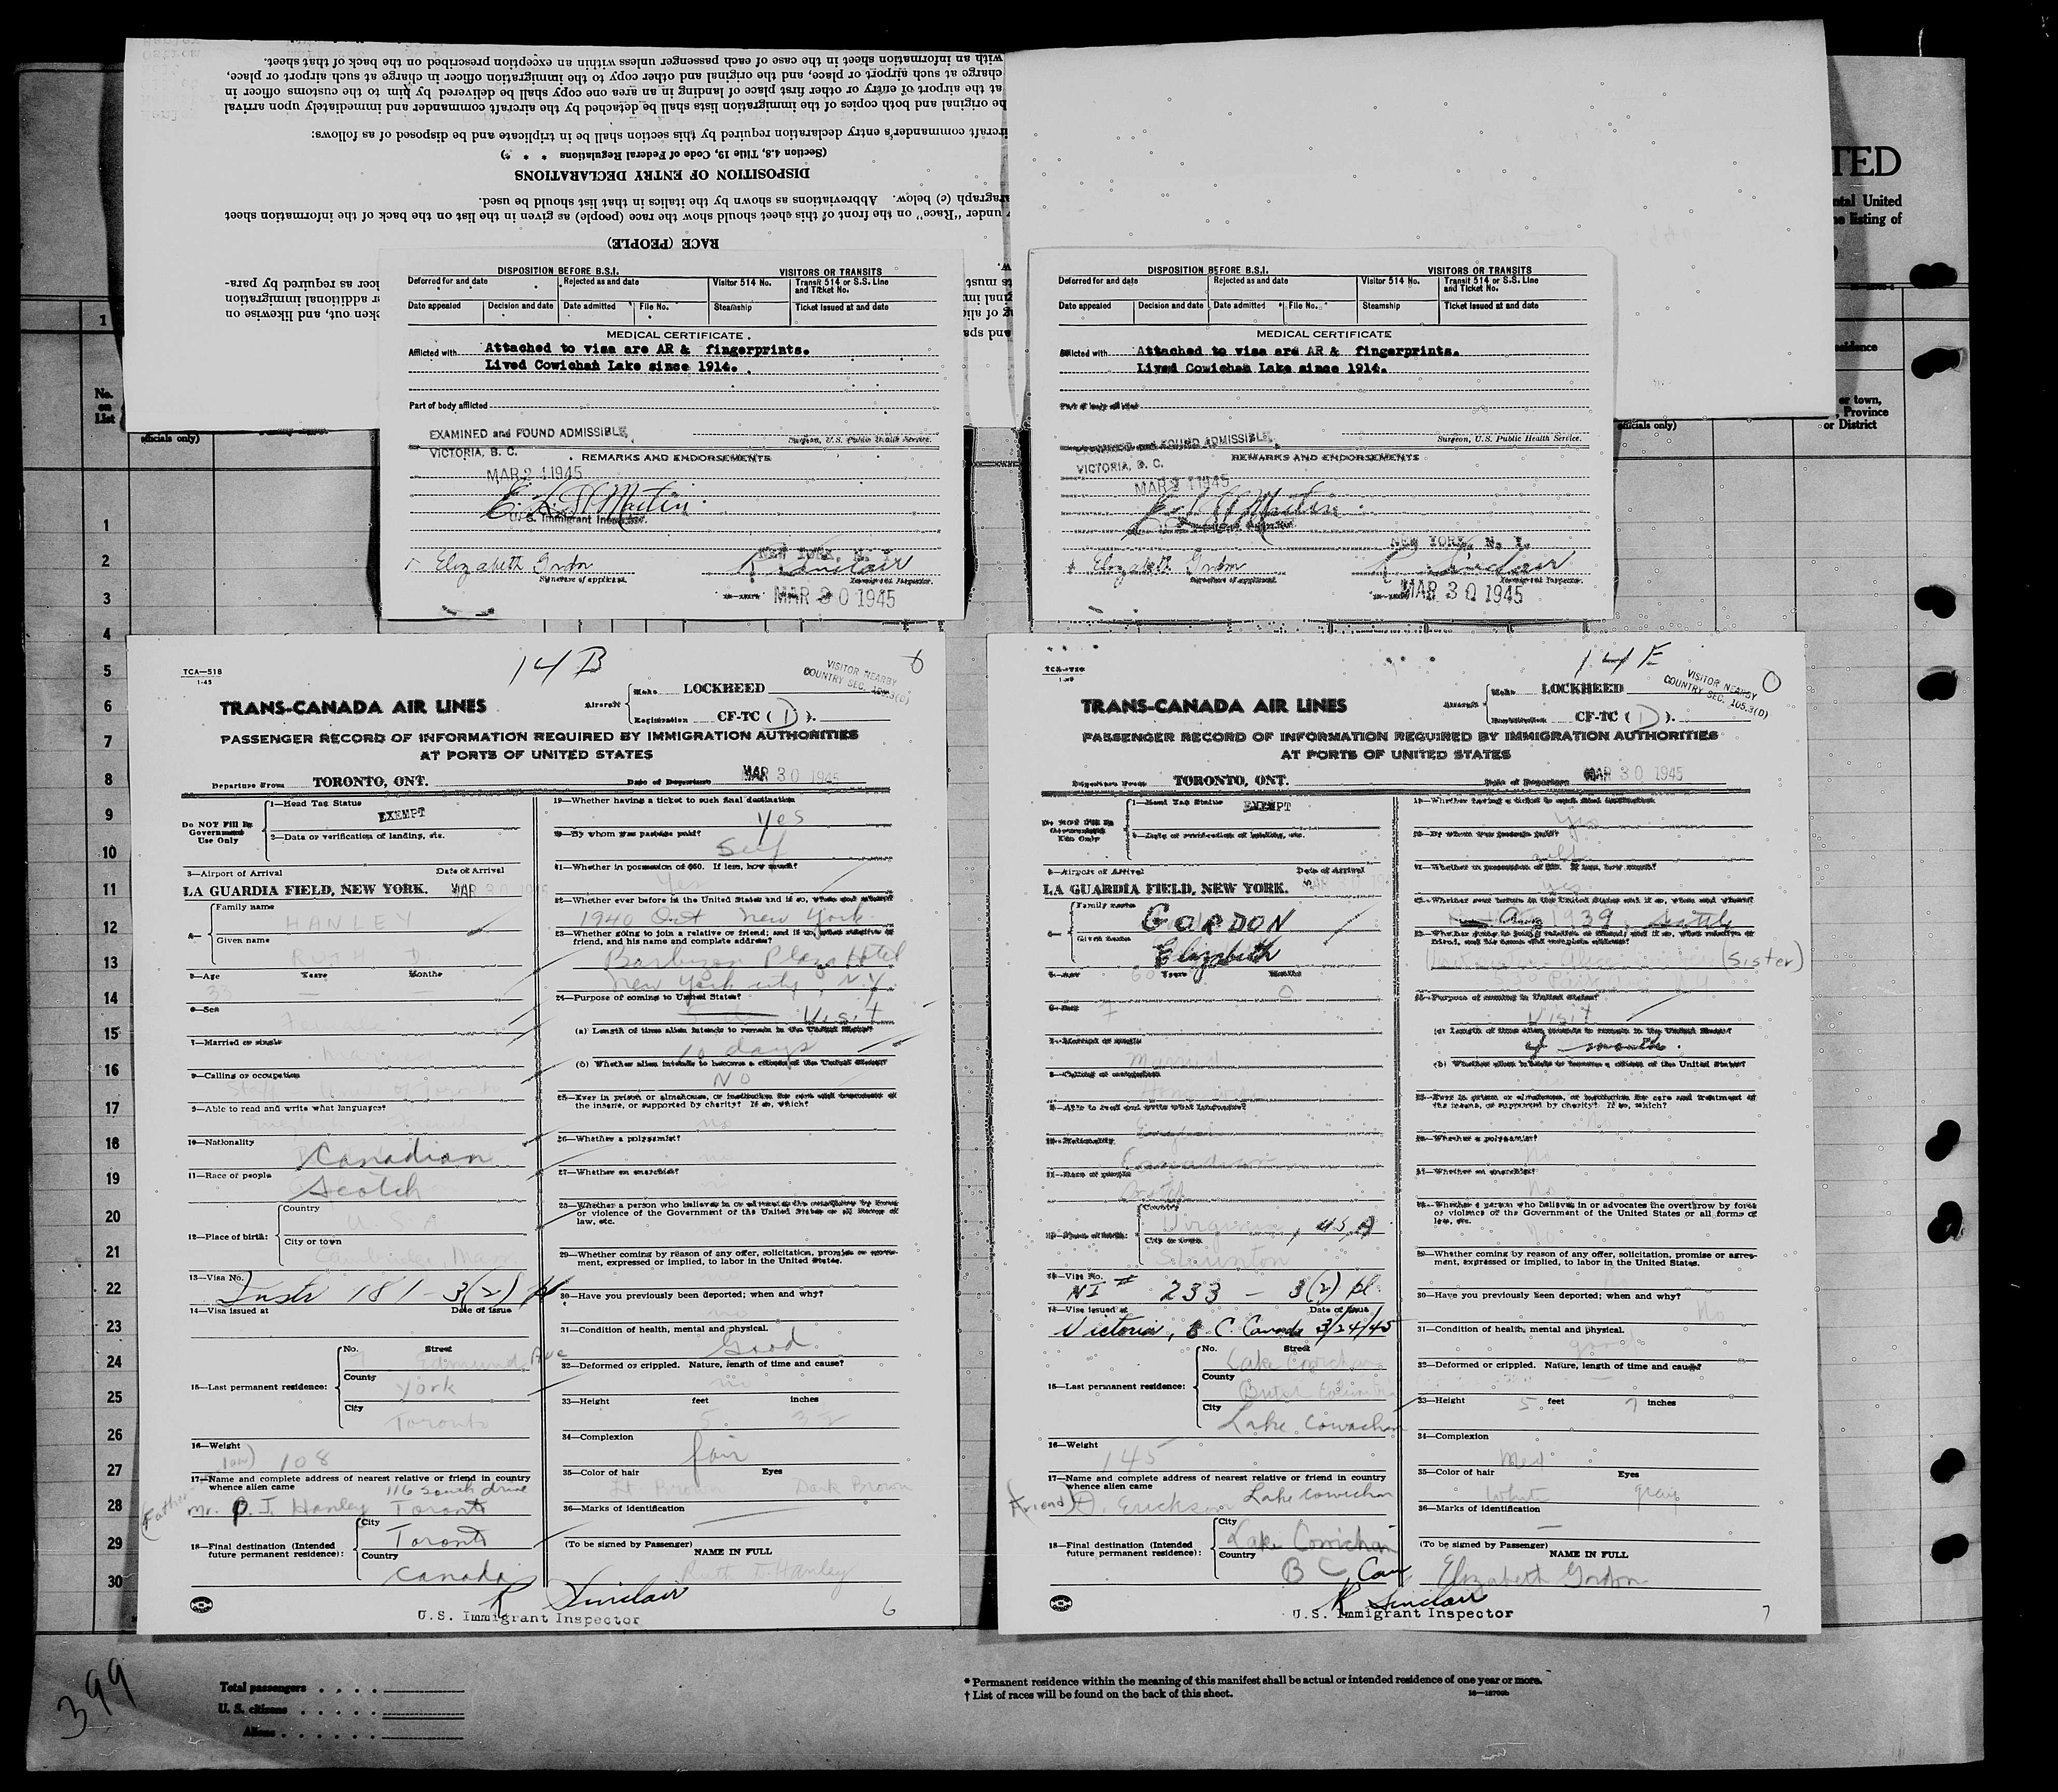 with an information sheet in the case of each passenger unless within an exception prescribed on the back of that sheet.
charge at such airport or place, and the original and other copy to the immigration officer in charge at such airport or place,
at the airport of entry or other first place of landing in an area one copy shall be delivered by him to the customs officer in
he original and both copies of the immigration lists shall be detached by the aircraft commander and immediately upon arrival
ircraft commander's entry declaration required by this section shall be in triplicate and be disposed of as follows:
(Section 4.8, Title 19, Code of Federal Regulations * * *)
DISPOSITION OF ENTRY DECLARATIONS
ragraph (c) below. Abbreviations as shown by the italics in that list should be used.
under "Race" on the front of this sheet should show the race (people) as given in the list on the back of the information sheet
RACE (PEOPLE)
icer as required by para-
or additional immigration
ken out, and likewise on
TED
ntal United
he listing of
1
No.
on
List
officials only)
officials only)
or town,
, Province
or District
DISPOSITION BEFORE B.S.I. VISITORS OR TRANSITS
Deferred for and date Rejected as and date Visitor 514 No. Transit 514 or S.S. Line and Ticket No.
Date appealed Decision and date Date admitted File No. Steamship Ticket issued at and date
MEDICAL CERTIFICATE
Afflicted with Attached to visa are AR & fingerprints.
Lived Cowichan Lake since 1914.
Part of body afflicted
EXAMINED and FOUND ADMISSIBLE
Surgeon, U.S. Public Health Service.
VICTORIA, B. C. REMARKS AND ENDORSEMENTS
MAR 24 1945
Martin
U.S. Immigrant Inspector.
Elizabeth Gordon NEW YORK, N. Y.
R Sinclair
Signature of applicant. Immigrant Inspector.
MAR 30 1945
DISPOSITION BEFORE B.S.I. VISITORS OR TRANSITS
Deferred for and date Rejected as and date Visitor 514 No. Transit 514 or S.S. Line and Ticket No.
Date appealed Decision and date Date admitted File No. Steamship Ticket issued at and date
MEDICAL CERTIFICATE
Afflicted with Attached to visa are AR & fingerprints.
Lived Cowichan Lake since 1914.
Part of body afflicted
EXAMINED and FOUND ADMISSIBLE
Surgeon, U.S. Public Health Service.
VICTORIA, B. C. REMARKS AND ENDORSEMENTS
MAR 24 1945
Martin
Elizabeth Gordon NEW YORK, N. Y.
R Sinclair
Signature of applicant. Immigrant Inspector.
MAR 30 1945
1
2
3
4
5
6
7
8
9
10
11
12
13
14
15
16
17
18
19
20
21
22
23
24
25
26
27
28
29
30
TCA—518
1-45
14 B
VISITOR NEARBY
COUNTRY SEC. 105.3(D)
TRANS-CANADA AIR LINES
Aircraft Make LOCKHEED
Registration CF-TC ( D ).
PASSENGER RECORD OF INFORMATION REQUIRED BY IMMIGRATION AUTHORITIES
AT PORTS OF UNITED STATES
Departure From TORONTO, ONT. Date of Departure MAR 30 1945
Do NOT Fill In Government Use Only
1—Head Tag Status EXEMPT
2—Data or verification of landing, etc.
3—Airport of Arrival Date of Arrival
LA GUARDIA FIELD, NEW YORK. MAR 30 1945
4— Family name HANLEY
Given name RUTH D.
5—Age Years Months
33
6—Sex
7—Married or single
8—Calling or occupation
9—Able to read and write what languages?
10—Nationality
Canadian
11—Race of people
Scotch
12—Place of birth: Country
U S A
City or town
13—Visa No.
Instr 181 - 3(2) pl
14—Visa issued at Date of issue
15—Last permanent residence: No. Street
Edmund Ave
County York
City Toronto
16—Weight
108
17—Name and complete address of nearest relative or friend in country whence alien came
116 South Drive
(Father) Mr. P. J. Hanley Toronto
18—Final destination (Intended future permanent residence): City
Toronto
Country
Canada
19—Whether having a ticket to such final destination
Yes
20—By whom was passage paid?
Self
21—Whether in possession of $50. If less, how much?
Yes
22—Whether ever before in the United States and if so, when and where?
1940 Oct New York
23—Whether going to join a relative or friend; and if so, what relative or friend, and his name and complete address?
Barbizon Plaza Hotel
New York City, N.Y.
24—Purpose of coming to United States?
Visit
(a) Length of time alien intends to remain in the United States?
10 days
(b) Whether alien intends to become a citizen of the United States?
No
25—Ever in prison or almshouse, or institution for care and treatment of the insane, or supported by charity? If so, which?
no
26—Whether a polygamist?
no
27—Whether an anarchist?
28—Whether a person who believes in or advocates the overthrow by force or violence of the Government of the United States or all forms of law, etc.
29—Whether coming by reason of any offer, solicitation, promise or agreement, expressed or implied, to labor in the United States.
30—Have you previously been deported; when and why?
no
31—Condition of health, mental and physical.
Good
32—Deformed or crippled. Nature, length of time and cause?
no
33—Height feet inches
5
34—Complexion
fair
35—Color of hair Eyes
Lt Brown Dark Brown
36—Marks of identification
(To be signed by Passenger) NAME IN FULL
Ruth D. Hanley
R Sinclair
U.S. Immigrant Inspector
6
14 E
VISITOR NEARBY
COUNTRY SEC. 105.3(D)
TRANS-CANADA AIR LINES
Aircraft Make LOCKHEED
Registration CF-TC ( D ).
PASSENGER RECORD OF INFORMATION REQUIRED BY IMMIGRATION AUTHORITIES
AT PORTS OF UNITED STATES
Departure From TORONTO, ONT. Date of Departure MAR 30 1945
1—Head Tag Status EXEMPT
3—Airport of Arrival Date of Arrival
LA GUARDIA FIELD, NEW YORK.
Family name GORDON
Given name Elizabeth
5—Age Years Months
6—Sex
F
7—Married or single
Married
8—Calling or occupation
9—Able to read and write what languages?
10—Nationality
Canadian
11—Race of people
12—Place of birth: Country
Virginia, U.S.A
City or town
Staunton
13—Visa No.
NI # 233 - 3(2) pl.
14—Visa issued at Date of issue
Victoria, B. C. Canada 3/24/45
15—Last permanent residence: No. Street
Lake Cowichan
County
British Columbia
City
Lake Cowachan
16—Weight
145
17—Name and complete address of nearest relative or friend in country whence alien came
(friend) Lake Cowichan
18—Final destination (Intended future permanent residence): City
Lake Cowichan
Country
B C Can
19—Whether having a ticket to such final destination
Yes
20—By whom was passage paid?
self
21—Whether in possession of $50. If less, how much?
Yes
22—Whether ever before in the United States and if so, when and where?
1939, Seattle
23—Whether going to join a relative or friend; and if so, what relative or friend, and his name and complete address?
(Sister)
24—Purpose of coming to United States?
Visit
(a) Length of time alien intends to remain in the United States?
month
(b) Whether alien intends to become a citizen of the United States?
25—Ever in prison or almshouse, or institution for care and treatment of the insane, or supported by charity? If so, which?
26—Whether a polygamist?
No
27—Whether an anarchist?
No
28—Whether a person who believes in or advocates the overthrow by force or violence of the Government of the United States or all forms of law, etc.
No
29—Whether coming by reason of any offer, solicitation, promise or agreement, expressed or implied, to labor in the United States.
30—Have you previously been deported; when and why?
No
31—Condition of health, mental and physical.
good
32—Deformed or crippled. Nature, length of time and cause?
33—Height 5 feet 7 inches
34—Complexion
Med
35—Color of hair Eyes
White gray
36—Marks of identification
(To be signed by Passenger) NAME IN FULL
Elizabeth Gordon
R Sinclair
U.S. Immigrant Inspector
7
399
Total passengers
U. S. citizens
Aliens
* Permanent residence within the meaning of this manifest shall be actual or intended residence of one year or more.
† List of races will be found on the back of this sheet.